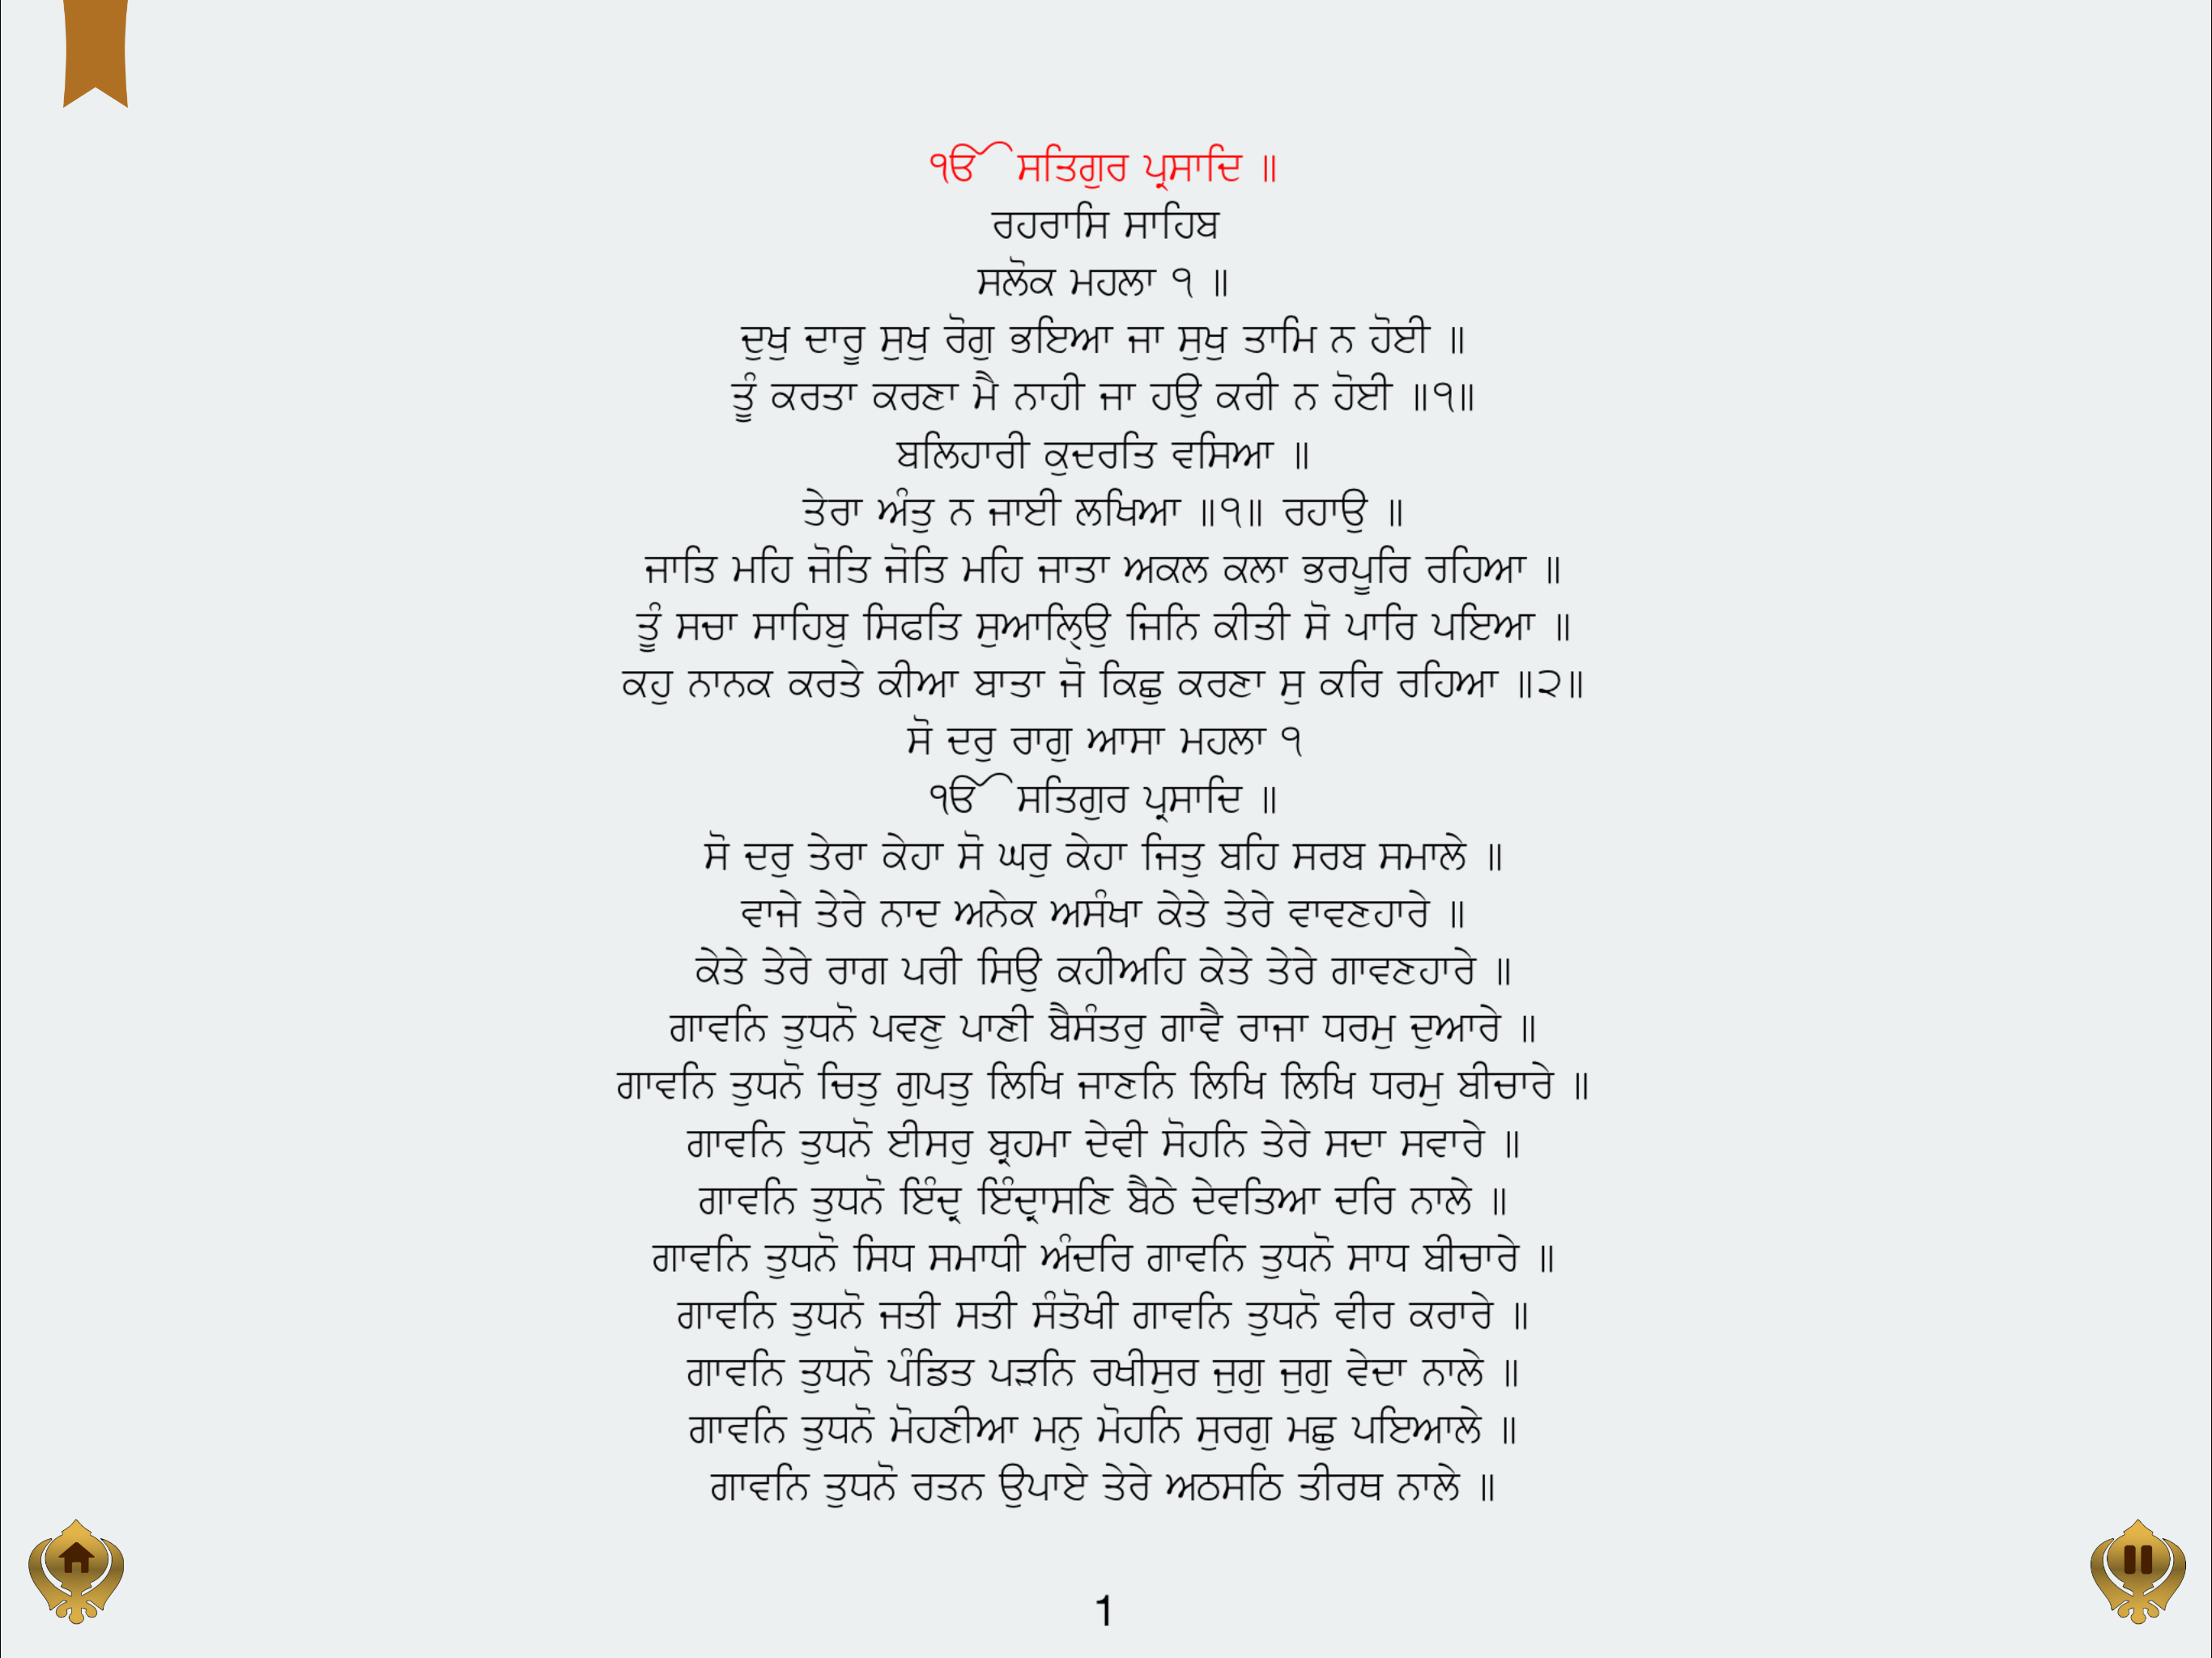 ੴ ਸਤਿਗੁਰ ਪ੍ਰਸਾਦਿ ॥
ਰਹਰਾਸਿ ਸਾਹਿਬ
ਸਲੋਕ ਮਹਲਾ ੧ ॥
ਦੁਖੁ ਦਾਰੂ ਸੁਖੁ ਰੋਗੁ ਭਇਆ ਜਾ ਸੁਖੁ ਤਾਮਿ ਨ ਹੋਈ ॥
ਤੂੰ ਕਰਤਾ ਕਰਣਾ ਮੈ ਨਾਹੀ ਜਾ ਹਉ ਕਰੀ ਨ ਹੋਈ ॥੧॥
ਬਲਿਹਾਰੀ ਕੁਦਰਤਿ ਵਸਿਆ ॥
ਤੇਰਾ ਅੰਤੁ ਨ ਜਾਈ ਲਖਿਆ ॥੧॥ ਰਹਾਉ ॥
ਜਾਤਿ ਮਹਿ ਜੋਤਿ ਜੋਤਿ ਮਹਿ ਜਾਤਾ ਅਕਲ ਕਲਾ ਭਰਪੂਰਿ ਰਹਿਆ ॥
ਤੂੰ ਸਚਾ ਸਾਹਿਬੁ ਸਿਫਤਿ ਸੁਆਲ੍ਹਿਉ ਜਿਨਿ ਕੀਤੀ ਸੋ ਪਾਰਿ ਪਇਆ ॥
ਕਹੁ ਨਾਨਕ ਕਰਤੇ ਕੀਆ ਬਾਤਾ ਜੋ ਕਿਛੁ ਕਰਣਾ ਸੁ ਕਰਿ ਰਹਿਆ ॥੨॥
ਸੋ ਦਰੁ ਰਾਗੁ ਆਸਾ ਮਹਲਾ ੧
ੴ ਸਤਿਗੁਰ ਪ੍ਰਸਾਦਿ ॥
ਸੋ ਦਰੁ ਤੇਰਾ ਕੇਹਾ ਸੋ ਘਰੁ ਕੇਹਾ ਜਿਤੁ ਬਹਿ ਸਰਬ ਸਮਾਲੇ ॥
ਵਾਜੇ ਤੇਰੇ ਨਾਦ ਅਨੇਕ ਅਸੰਖਾ ਕੇਤੇ ਤੇਰੇ ਵਾਵਣਹਾਰੇ ॥
ਕੇਤੇ ਤੇਰੇ ਰਾਗ ਪਰੀ ਸਿਉ ਕਹੀਅਹਿ ਕੇਤੇ ਤੇਰੇ ਗਾਵਣਹਾਰੇ ॥
ਗਾਵਨਿ ਤੁਧਨੋ ਪਵਣੁ ਪਾਣੀ ਬੈਸੰਤਰੁ ਗਾਵੈ ਰਾਜਾ ਧਰਮੁ ਦੁਆਰੇ ॥
ਗਾਵਨਿ ਤੁਧਨੋ ਚਿਤੁ ਗੁਪਤੁ ਲਿਖਿ ਜਾਣਨਿ ਲਿਖਿ ਲਿਖਿ ਧਰਮੁ ਬੀਚਾਰੇ ॥
ਗਾਵਨਿ ਤੁਧਨੋ ਈਸਰੁ ਬ੍ਰਹਮਾ ਦੇਵੀ ਸੋਹਨਿ ਤੇਰੇ ਸਦਾ ਸਵਾਰੇ ॥
ਗਾਵਨਿ ਤੁਧਨੋ ਇੰਦ੍ਰ ਇੰਦ੍ਰਾਸਣਿ ਬੈਠੇ ਦੇਵਤਿਆ ਦਰਿ ਨਾਲੇ ॥
ਗਾਵਨਿ ਤੁਧਨੋ ਸਿਧ ਸਮਾਧੀ ਅੰਦਰਿ ਗਾਵਨਿ ਤੁਧਨੋ ਸਾਧ ਬੀਚਾਰੇ ॥
ਗਾਵਨਿ ਤੁਧਨੋ ਜਤੀ ਸਤੀ ਸੰਤੋਖੀ ਗਾਵਨਿ ਤੁਧਨੋ ਵੀਰ ਕਰਾਰੇ ॥
ਗਾਵਨਿ ਤੁਧਨੋ ਪੰਡਿਤ ਪੜਨਿ ਰਖੀਸੁਰ ਜੁਗੁ ਜੁਗੁ ਵੇਦਾ ਨਾਲੇ ॥
ਗਾਵਨਿ ਤੁਧਨੋ ਮੋਹਣੀਆ ਮਨੁ ਮੋਹਨਿ ਸੁਰਗੁ ਮਛੁ ਪਇਆਲੇ ॥
ਗਾਵਨਿ ਤੁਧਨੋ ਰਤਨ ਉਪਾਏ ਤੇਰੇ ਅਠਸਠਿ ਤੀਰਥ ਨਾਲੇ ॥
1